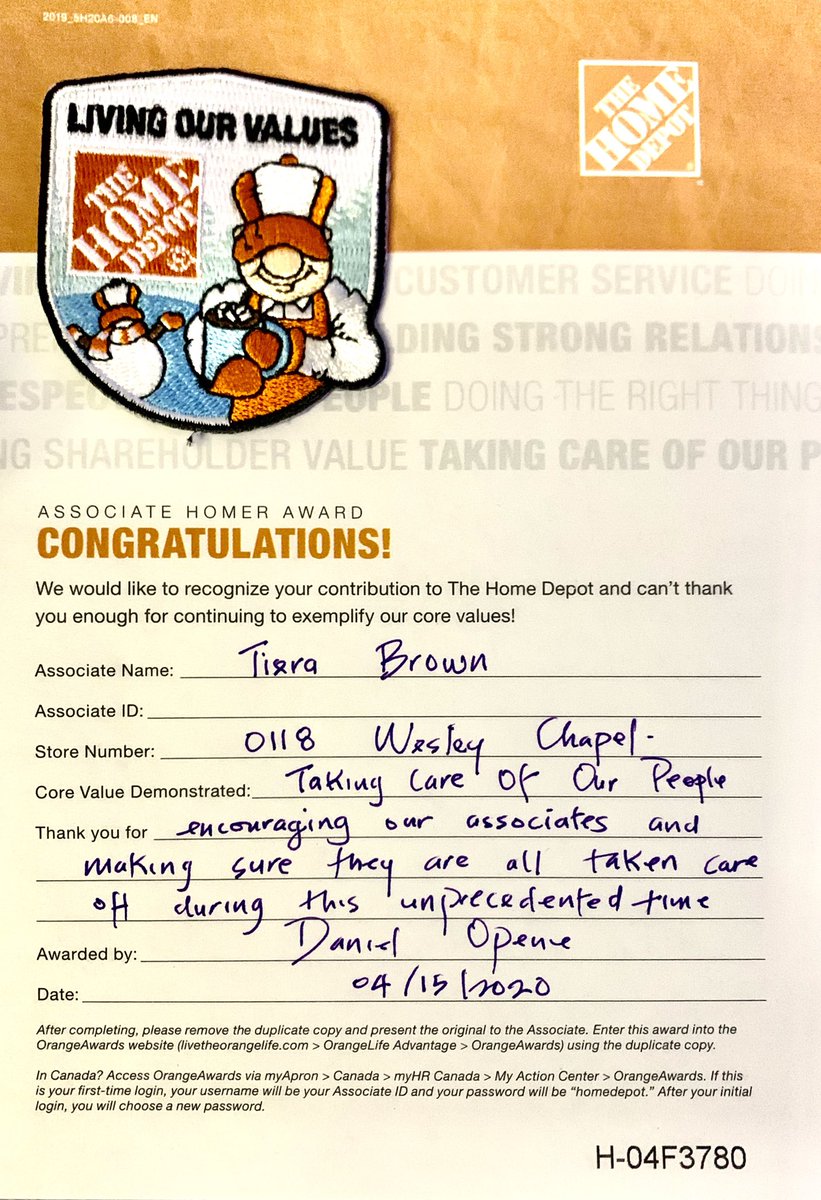 2019_SH20A6-008_EN
LIVING OUR VALUES
THE
HOME
DEPOT
THE
HOME
DEPOT
CUSTOMER SERVICE DOI
PRE
LDING STRONG RELATIONS
ESPEC
EOPLE DOING THE RIGHT THING
NG SHAREHOLDER VALUE TAKING CARE OF OUR P
ASSOCIATE HOMER AWARD
CONGRATULATIONS!
We would like to recognize your contribution to The Home Depot and can't thank
you enough for continuing to exemplify our core values!
Associate Name: Tiara Brown
Associate ID:
Store Number: 0118 Wesley Chapel.
Core Value Demonstrated: Taking Care Of Our People
Thank you for encouraging our associates and
making sure they are all taken care
off during this unprecedented time
Awarded by: Daniel Opene
Date: 04/15/2020
After completing, please remove the duplicate copy and present the original to the Associate. Enter this award into the
OrangeAwards website (livetheorangelife.com > OrangeLife Advantage > OrangeAwards) using the duplicate copy.
In Canada? Access OrangeAwards via myApron > Canada > myHR Canada > My Action Center > OrangeAwards. If this
is your first-time login, your username will be your Associate ID and your password will be “homedepot.” After your initial
login, you will choose a new password.
H-04F3780